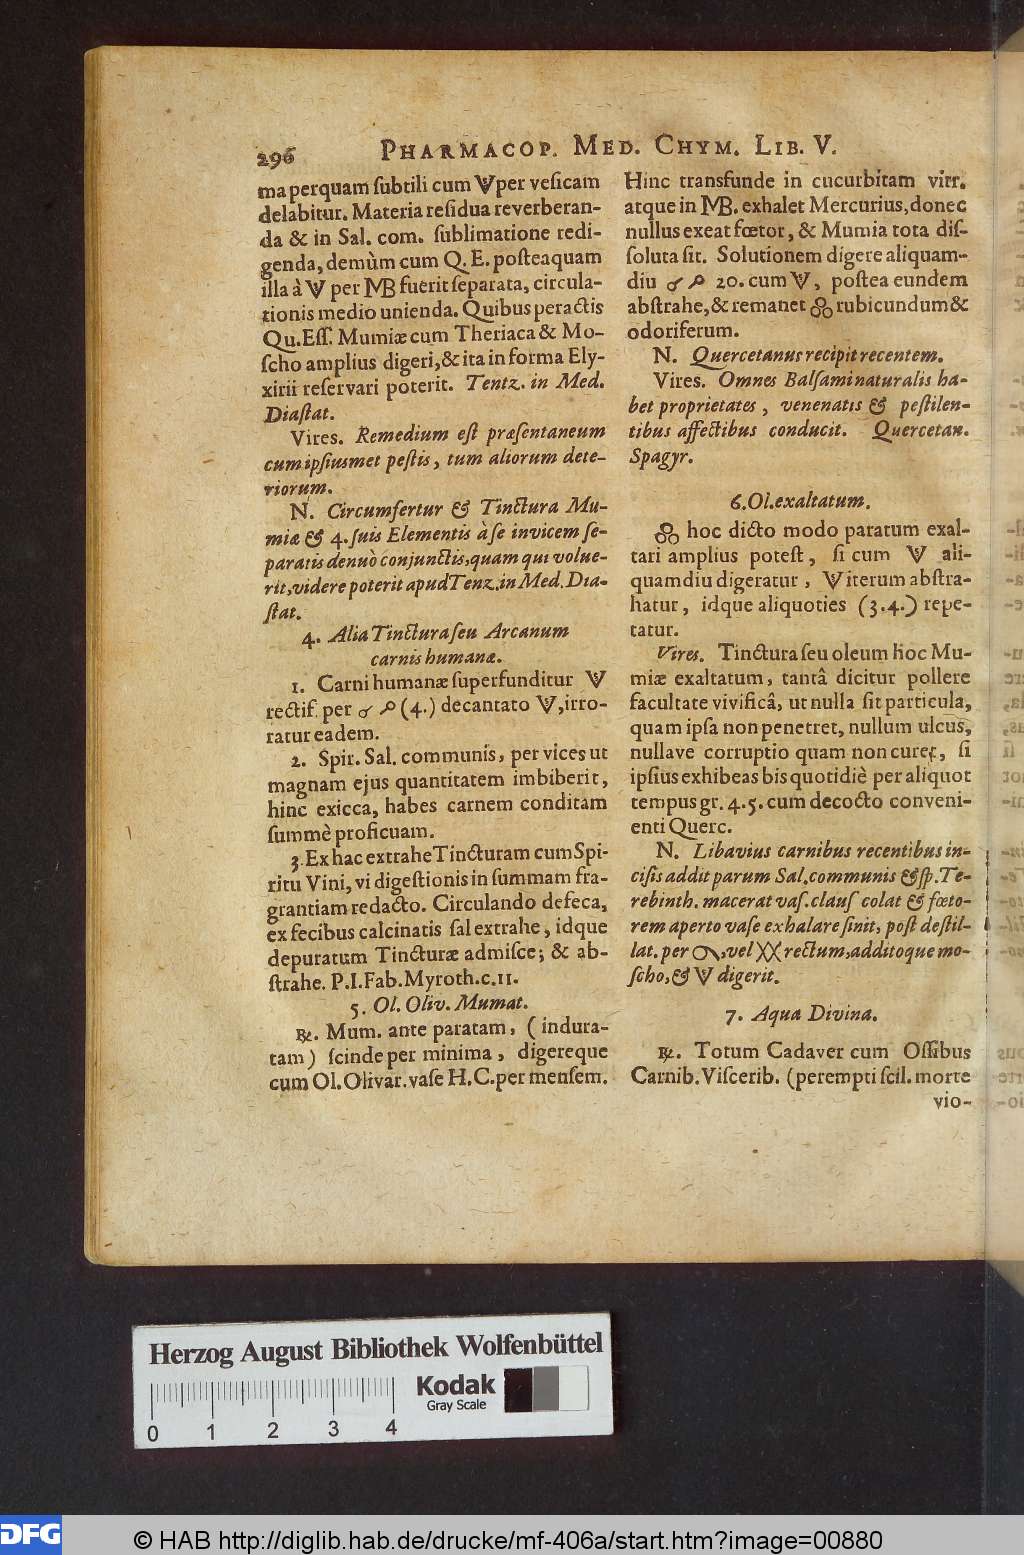 296 PHARMACOP. MED. CHYM. LIB. V.
ma perquam ſubtili cum 🜊 per veſicam
delabitur. Materia reſidua reverberan-
da & in Sal. com. ſublimatione redi-
genda, demùm cum Q. E. poſteaquam
illa à 🜊 per MB fuerit ſeparata, circula-
tionis medio unienda. Quibus peractis
Qu. Eſſ. Mumiæ cum Theriaca & Mo-
ſcho amplius digeri, & ita in forma Ely-
xirii reſervari poterit. Tentz. in Med.
Diaſtat.
Vires. Remedium eſt præſentaneum
cum ipſiusmet peſtis, tum aliorum dete-
riorum.
N. Circumfertur & Tinctura Mu-
miæ & 4. ſuis Elementis à ſe invicem ſe-
paratis denuò conjunctis, quam qui volue-
rit, videre poterit apud Tenz. in Med. Dia-
ſtat.
4. Alia Tinctura ſeu Arcanum
carnis humanæ.
1. Carni humanæ ſuperfunditur 🜊
rectif. per ☌ ☍ (4.) decantato 🜊, irro-
ratur eadem.
2. Spir. Sal. communis, per vices ut
magnam ejus quantitatem imbiberit,
hinc exicca, habes carnem conditam
ſummè proficuam.
3. Ex hac extrahe Tincturam cum Spi-
ritu Vini, vi digeſtionis in ſummam fra-
grantiam redacto. Circulando defeca,
ex fecibus calcinatis ſal extrahe, idque
depuratum Tincturæ admiſce; & ab-
ſtrahe. P. I. Fab. Myroth. c. 11.
5. Ol. Oliv. Mumat.
℞. Mum. ante paratam, (indura-
tam) ſcinde per minima, digereque
cum Ol. Olivar. vaſe H. C. per menſem.
Hinc transfunde in cucurbitam vitr.
atque in MB. exhalet Mercurius, donec
nullus exeat fœtor, & Mumia tota diſ-
ſoluta ſit. Solutionem digere aliquam-
diu ☌ ☍ 20. cum 🜊, poſtea eundem
abſtrahe, & remanet ꝏ rubicundum &
odoriferum.
N. Quercetanus recipit recentem.
Vires. Omnes Balſami naturalis ha-
bet proprietates, venenatis & peſtilen-
tibus affectibus conducit. Quercetan.
Spagyr.
6. Ol. exaltatum.
ꝏ hoc dicto modo paratum exal-
tari amplius poteſt, ſi cum 🜊 ali-
quamdiu digeratur, 🜊 iterum abſtra-
hatur, idque aliquoties (3. 4.) repe-
tatur.
Vires. Tinctura ſeu oleum hoc Mu-
miæ exaltatum, tantâ dicitur pollere
facultate vivificâ, ut nulla ſit particula,
quam ipſa non penetret, nullum ulcus,
nullave corruptio quam non curet, ſi
ipſius exhibeas bis quotidiè per aliquot
tempus gr. 4. 5. cum decocto conveni-
enti Querc.
N. Libavius carnibus recentibus in-
ciſis addit parum Sal. communis & ſp. Te-
rebinth. macerat vaſ. clauſ colat & fœto-
rem aperto vaſe exhalare ſinit, poſt deſtil-
lat. per , vel XX rectum, additoque mo-
ſcho, & 🜊 digerit.
7. Aqua Divina.
℞. Totum Cadaver cum Oſſibus
Carnib. Viſcerib. (perempti ſcil. morte
vio-
Herzog August Bibliothek Wolfenbüttel
Kodak
Gray Scale
0 1 2 3 4
DFG
© HAB http://diglib.hab.de/drucke/mf-406a/start.htm?image=00880